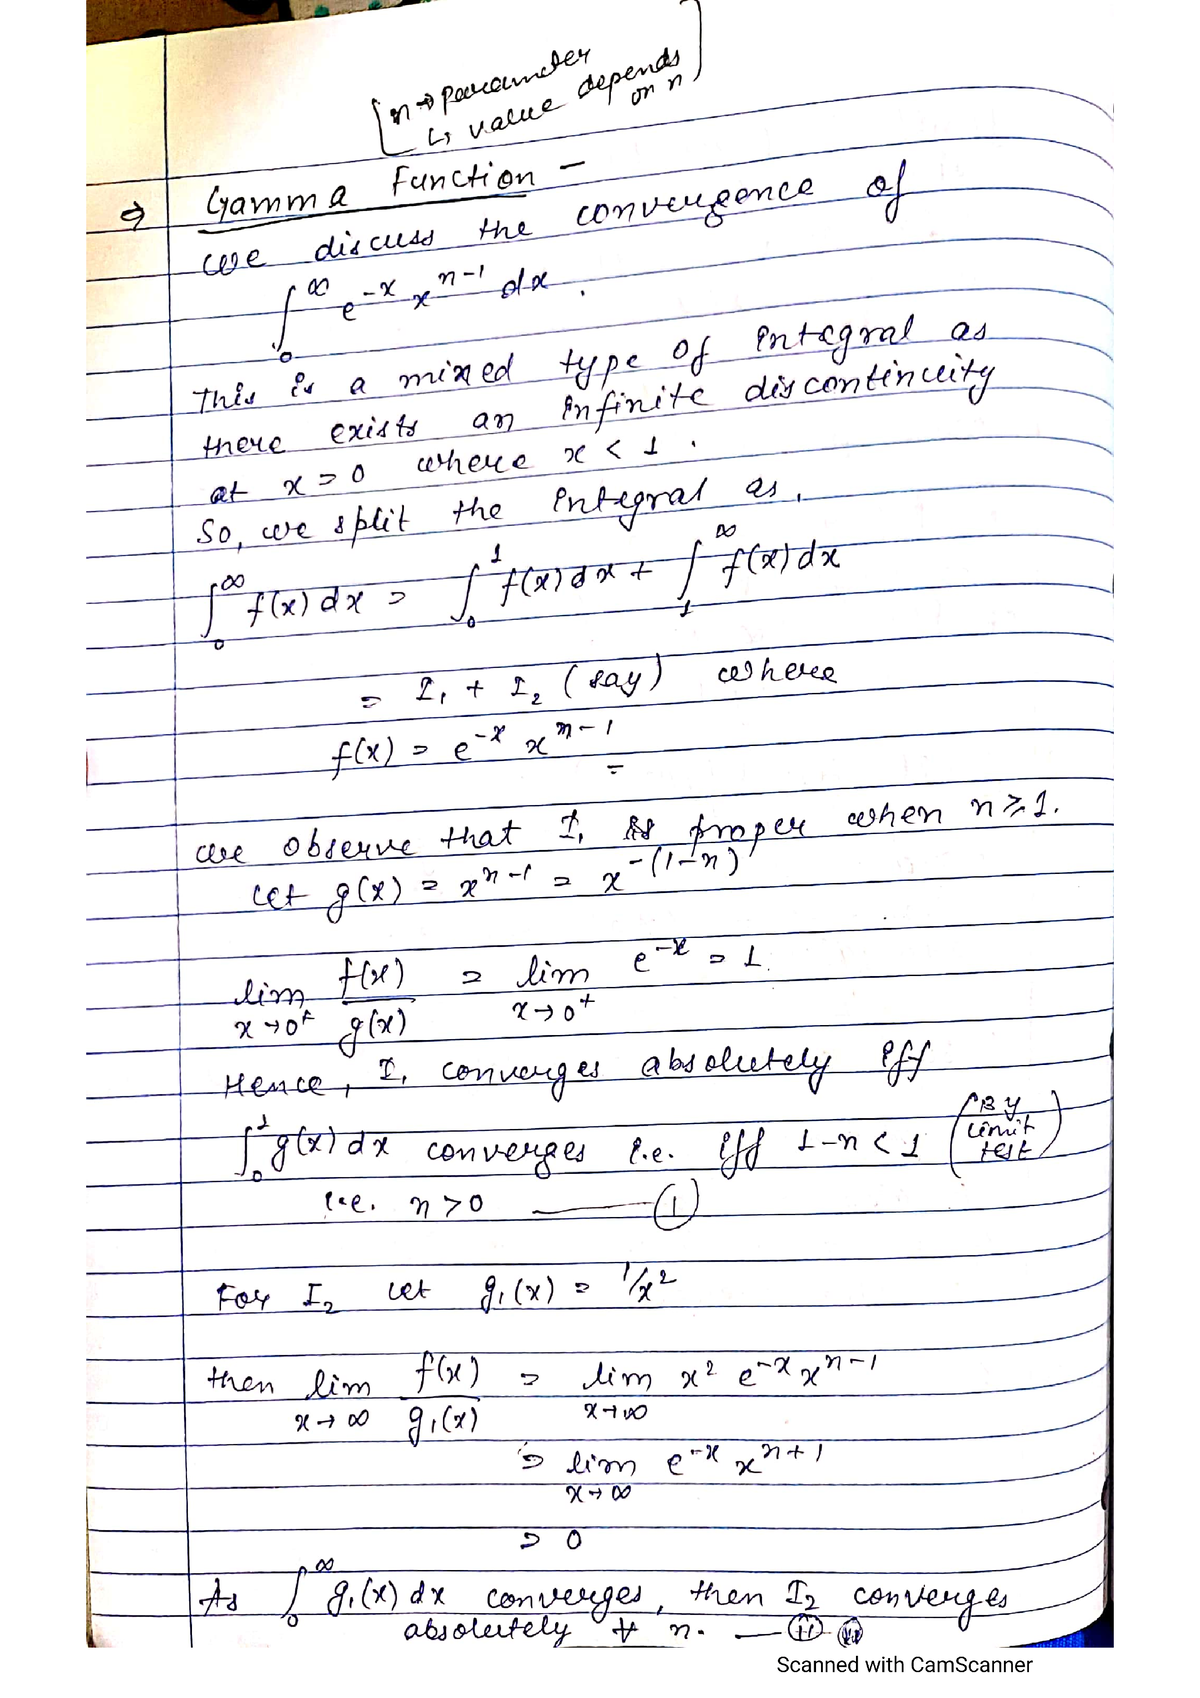 [n → parameter
↳ value depends
on n]
⇒ Gamma Function -
we discuss the convergence of
∫₀^∞ e^{-x} x^{n-1} dx .
This is a mixed type of integral as
there exists an infinite discontinuity
at x = 0 where x < 1 .
So, we split the integral as,
∫₀^∞ f(x) dx = ∫₀^1 f(x) dx + ∫₁^∞ f(x) dx
= I₁ + I₂ (say) where
f(x) = e^{-x} x^{n-1}
we observe that I₁ is proper when n ≥ 1.
Let g(x) = x^{n-1} = x^{-(1-n)}
lim_{x→0⁺} f(x)/g(x) = lim_{x→0⁺} e^{-x} = 1.
Hence, I₁ converges absolutely iff
∫₀^1 g(x) dx converges i.e. iff 1-n < 1 (By limit test)
i.e. n > 0 —— ①
For I₂ let g₁(x) = 1/x²
then lim_{x→∞} f(x)/g₁(x) = lim_{x→∞} x² e^{-x} x^{n-1}
= lim_{x→∞} e^{-x} x^{n+1}
= 0
As ∫₀^∞ g₁(x) dx converges, then I₂ converges
absolutely ∀ n. — (ii)
Scanned with CamScanner